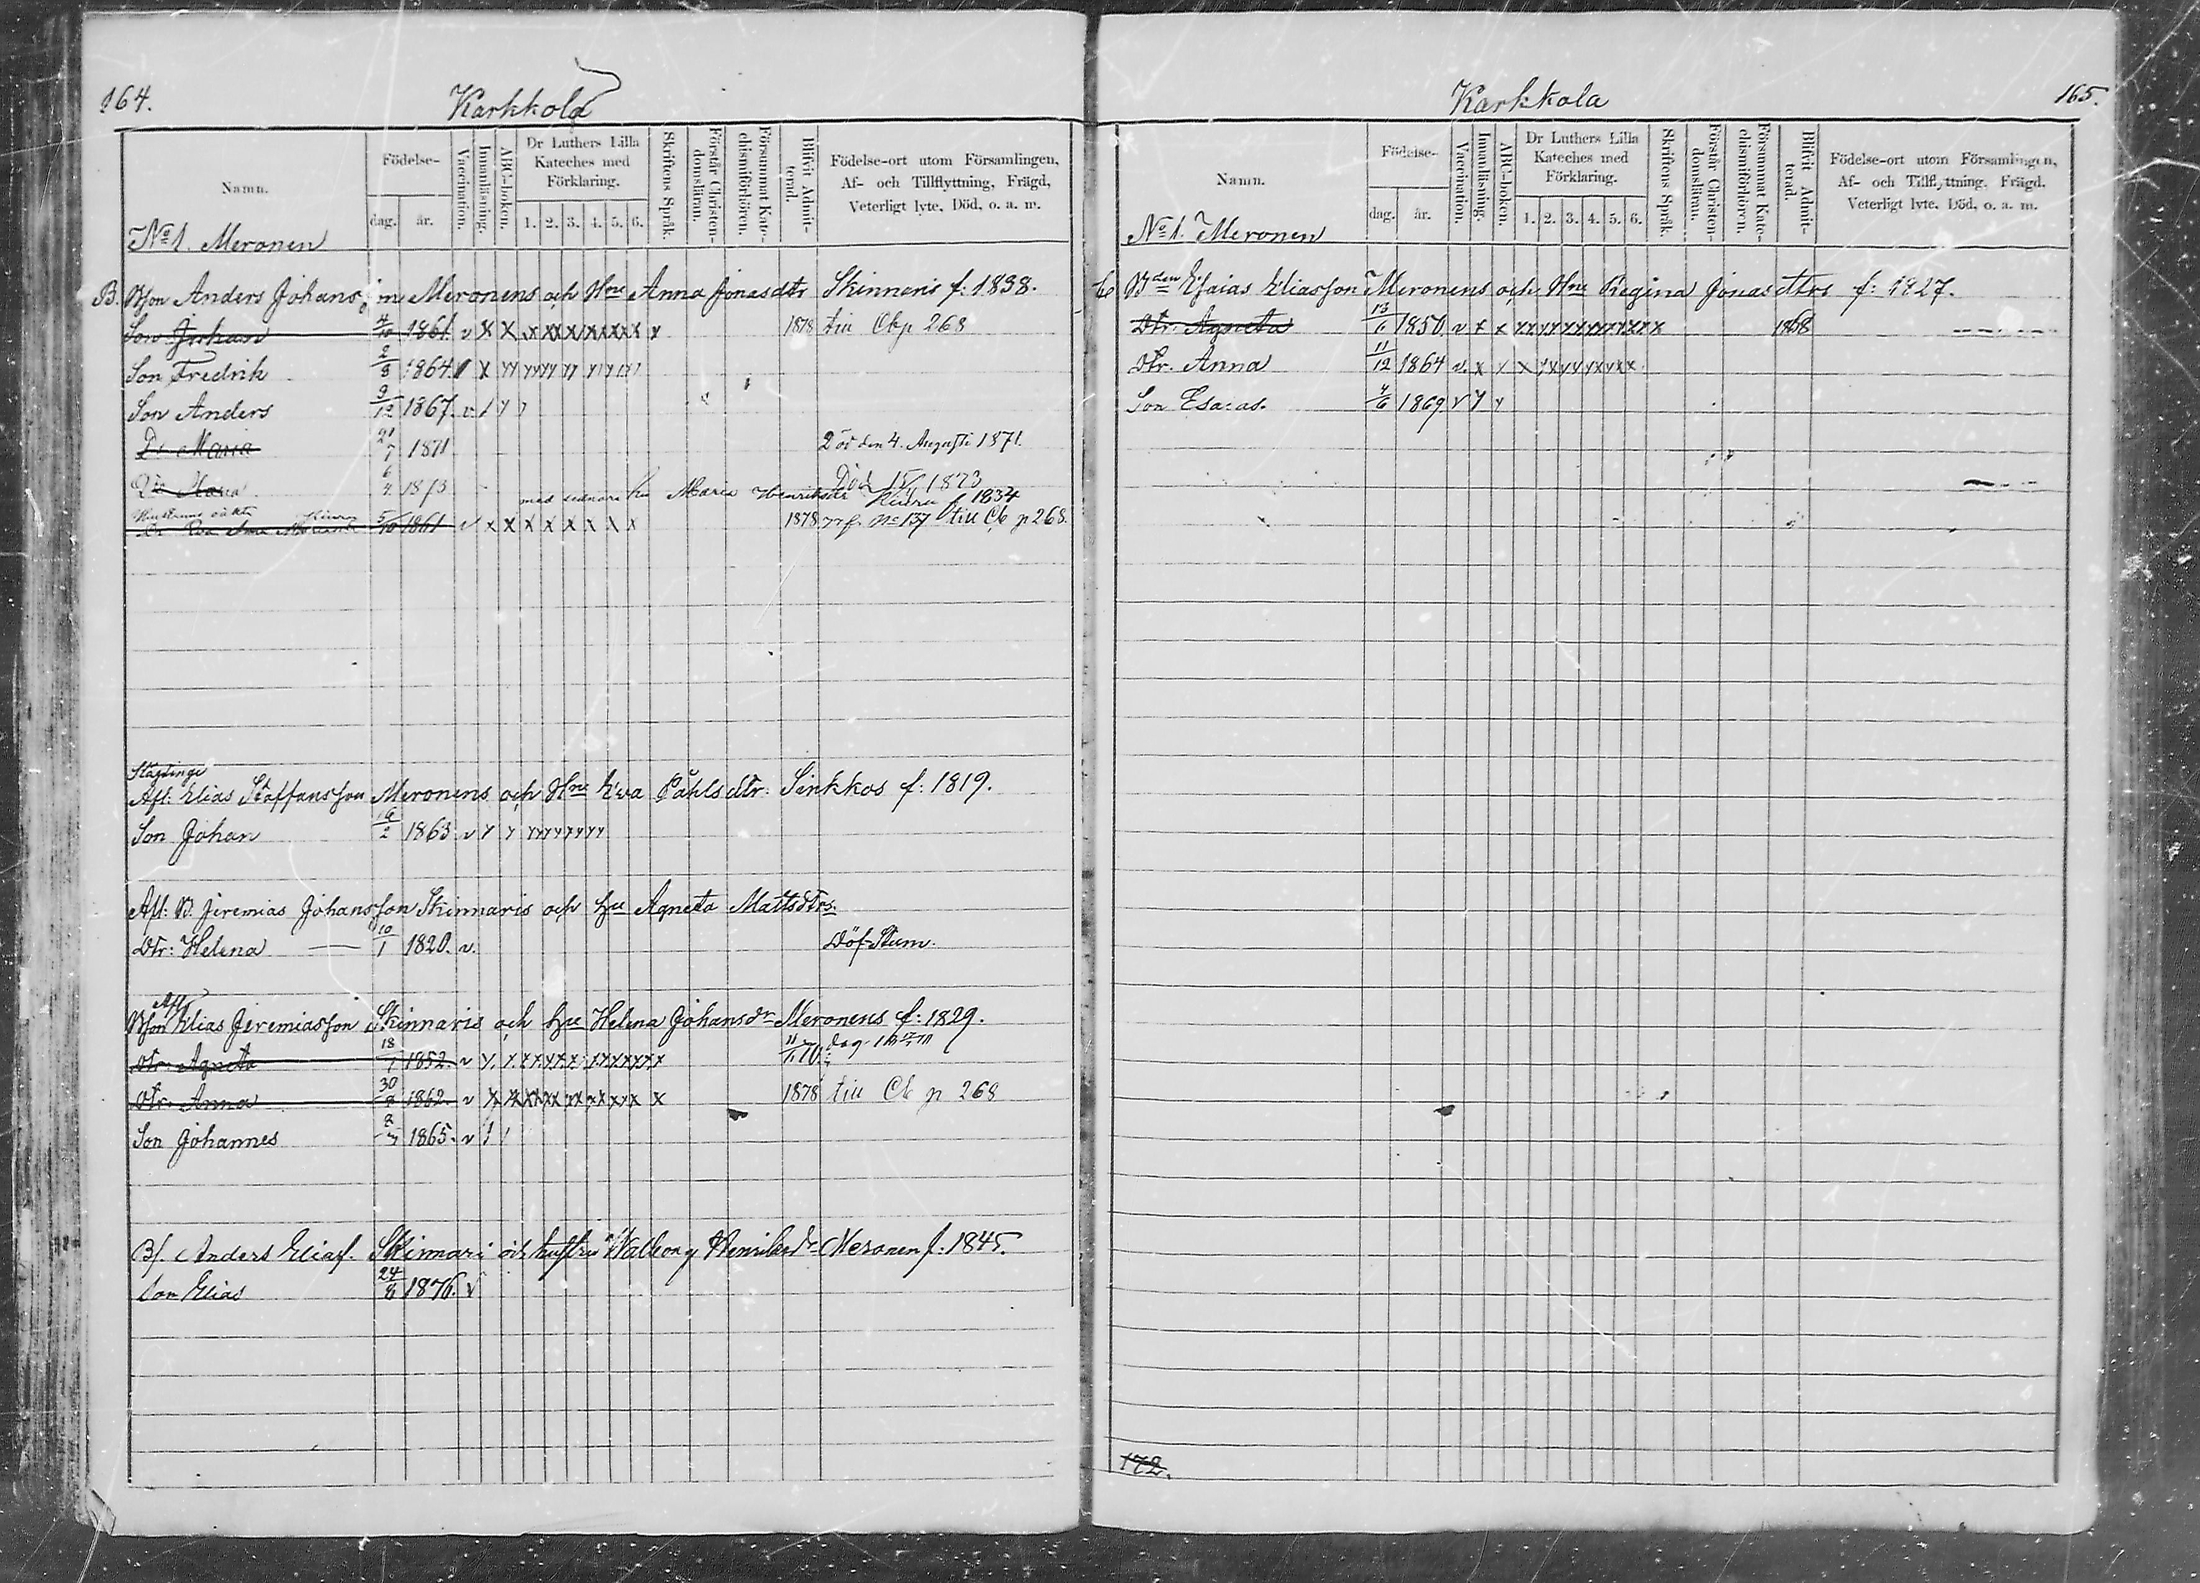 164.
Karkkola
Namn.
Födelse-
dag.
år.
Vaccination.
Innanläsning.
ABC-boken.
Dr Luthers Lilla
Kateches med
Förklaring.
1. 2. 3. 4. 5. 6.
Skriftens Språk.
Förstår Christen-
domsläran.
Försummat Kate-
chismiförhören.
Blifvit Admit-
terad.
Födelse-ort utom Församlingen,
Af- och Tillflyttning, Frägd,
Veterligt lyte, Död, o. a. m.
No 1. Meronen
B. Bson Anders Johansson Meronens och Hru Anna Jonasdtr Skinnaris f: 1838.
Son Johan 4/10 1861 v x x x x x x x x x x x x 1878 till Cb p 268
Son Fredrik 2/8 1864
Son Anders 9/12 1867. v
Dr Maria 21/7 1871 Död den 4. Augusti 1871.
Dr Maria 6/4 1873 Död 15/ 1873
med hu Maria Henriksdr f 1834
Dr 5/10 1861 v x x x x x x x x 1878 No 137 till Cb p 268.
Afl: Elias Staffansson Meronens och Hru Eva Påhlsdtr: Sinkkos f: 1819.
Son Johan 16/2 1863 v
Afl: B. Jeremias Johansson Skinnaris och hu Agneta Mattsdtrs
Dtr: Helena 10/1 1820. v. Döf-Stum.
Afl
Bson Elias Jeremiasson Skinnaris och hu Helena Johansdr Meronens f: 1829.
Dtr: Agneta 18/1 1852. v 11/11 70.
Dtr. Anna 30/8 1862. v 1878 till Cb p 268
Son Johannes 8/7 1865. v
Bs. Anders Eliass. Skinnari och hustru Walborg Henriksdr Meronen f: 1845.
Son Elias 24/8 1876. v
Karkkola
165.
Namn.
Födelse-
dag.
år.
Vaccination.
Innanläsning.
ABC-boken.
Dr Luthers Lilla
Kateches med
Förklaring.
1. 2. 3. 4. 5. 6.
Skriftens Språk.
Förstår Christen-
domsläran.
Försummat Kate-
chismiförhören.
Blifvit Admit-
terad.
Födelse-ort utom Församlingen,
Af- och Tillflyttning, Frägd,
Veterligt lyte, Död, o. a. m.
No 1. Meronen
C Bden Esaias Eliasson Meronens och Hru Regina Jonasdtrs f: 1827.
Dtr: Agneta 13/6 1850. v x x x x x x x x x x x x x 1868
Dtr. Anna 11/12 1864 v. x
Son Esaias. 4/6 1869 v
172.